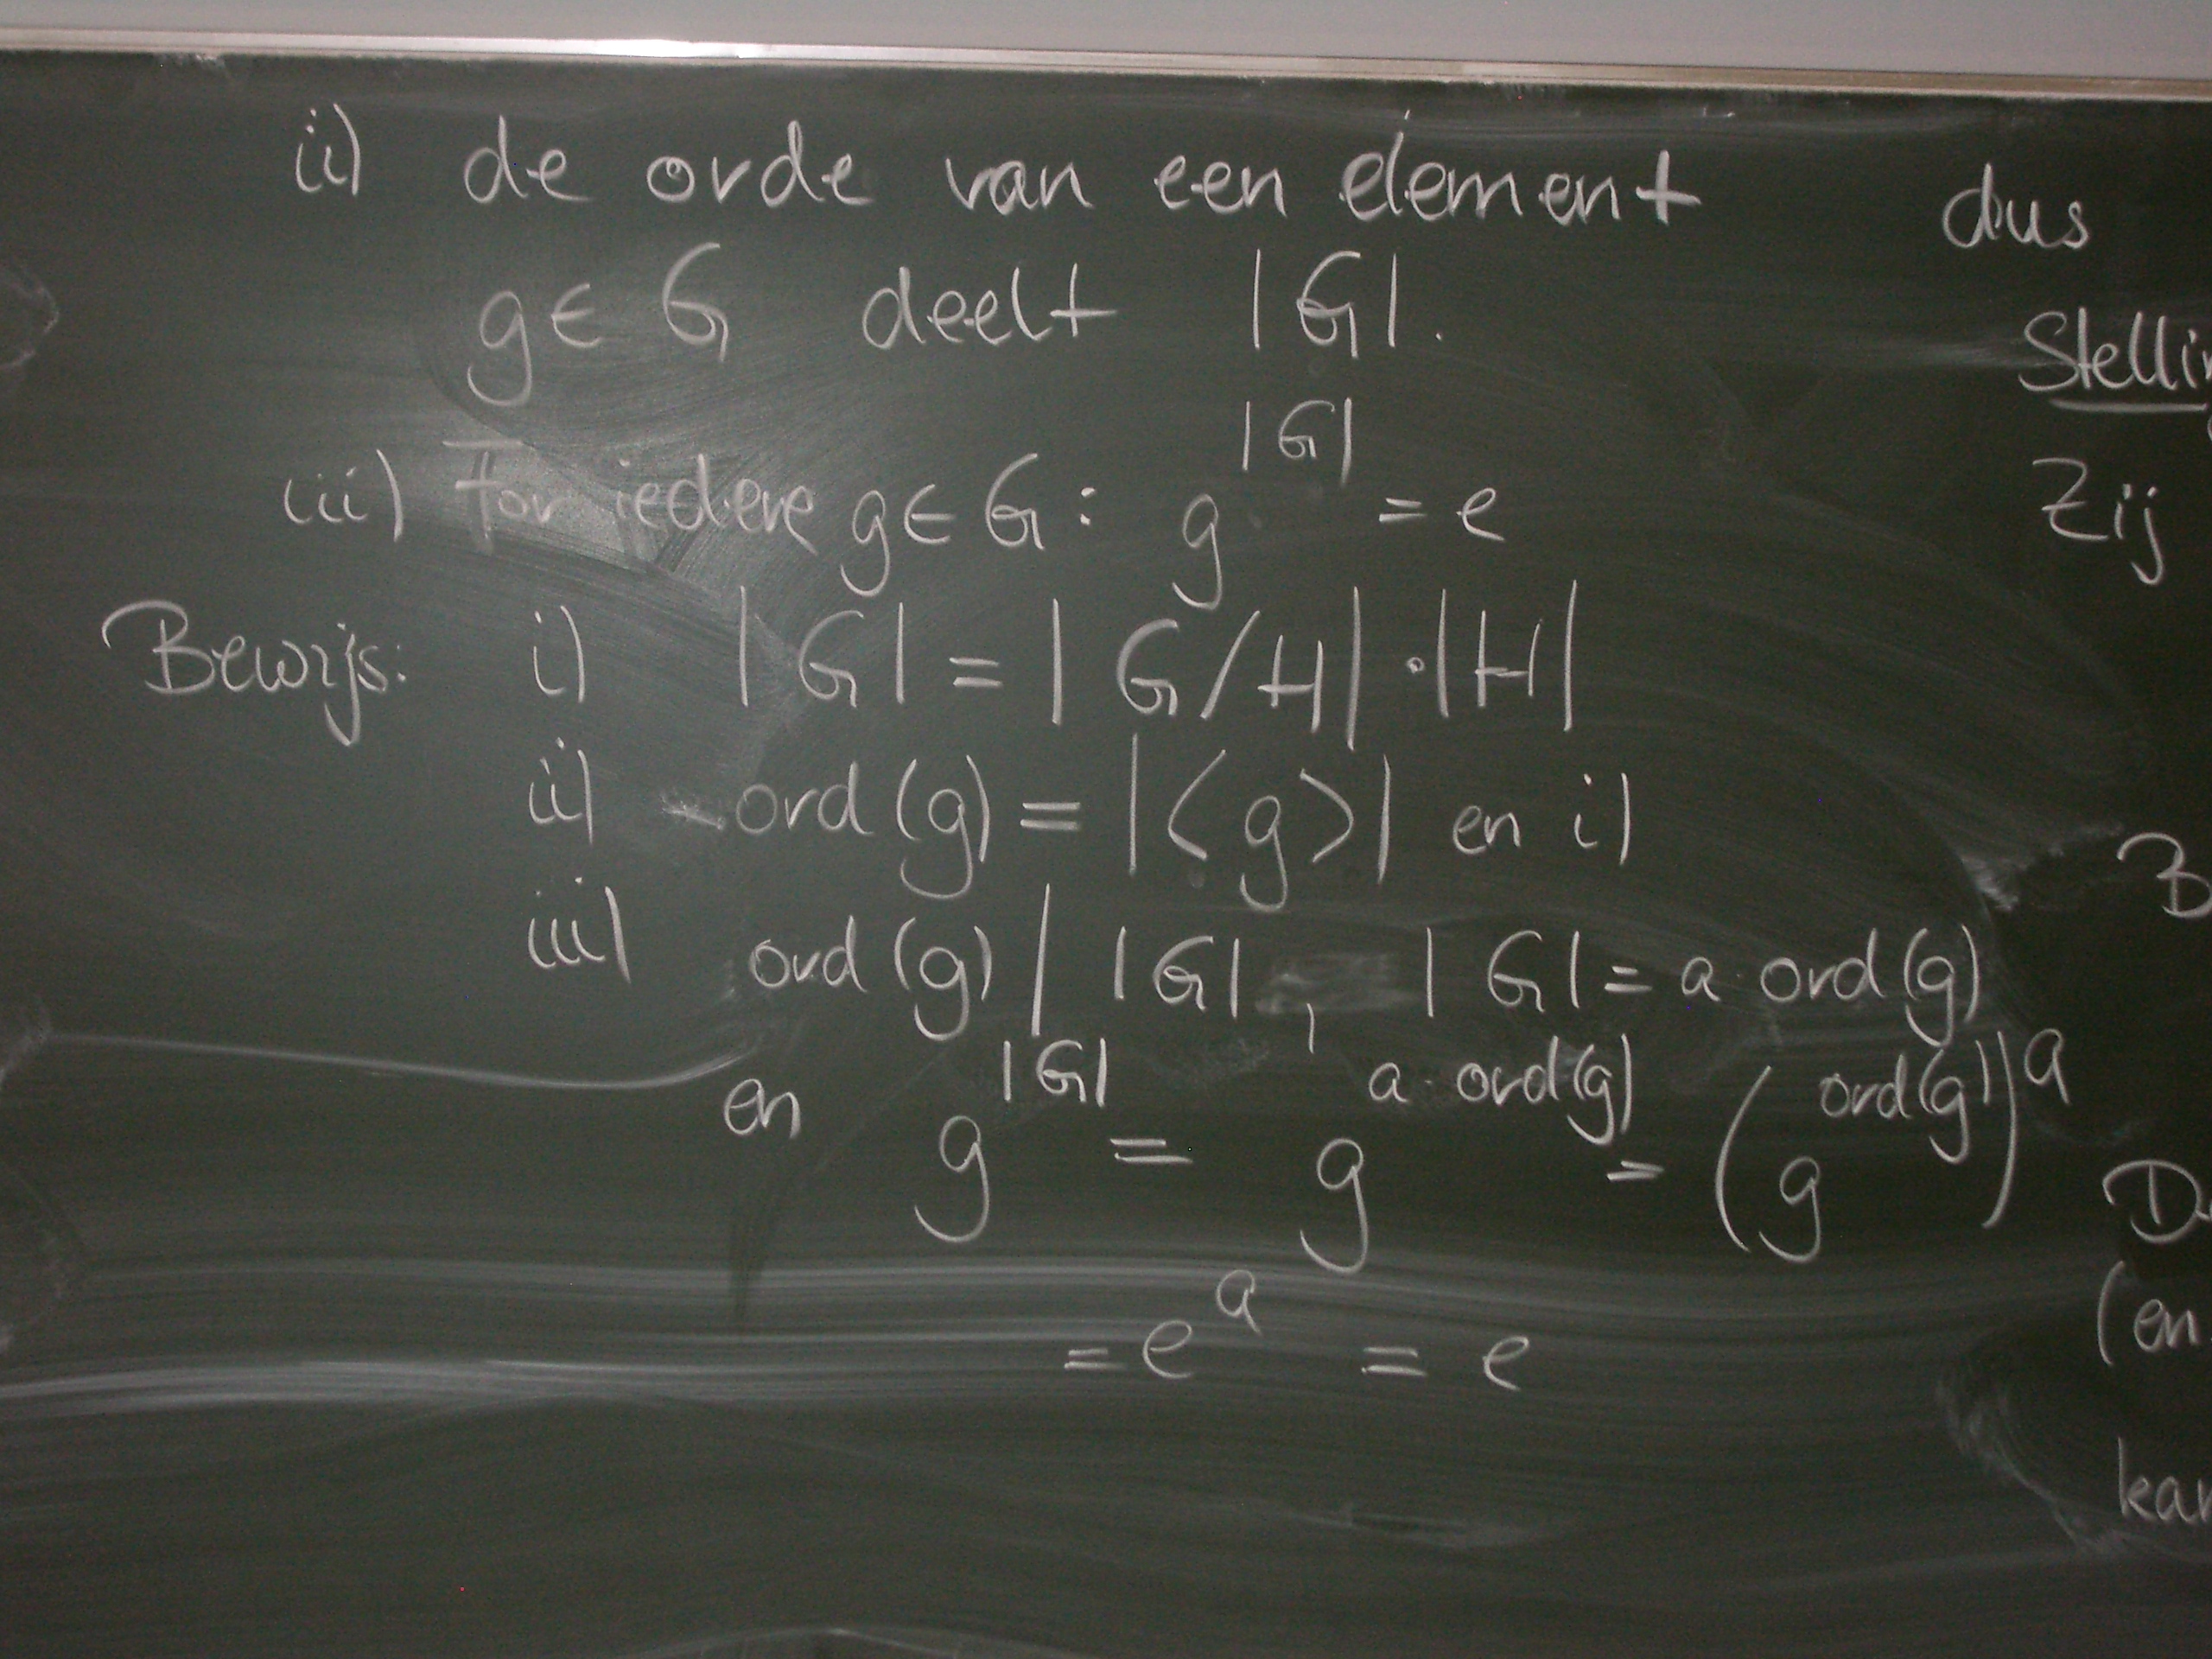 ii) de orde van een element
g ∈ G deelt |G|.
iii) For iedere g ∈ G : g^|G| = e
Bewijs: i) |G| = |G/H| · |H|
ii) ord(g) = |<g>| en i)
iii) ord(g) | |G| , |G| = a · ord(g)
en g^|G| = g^(a · ord(g)) = (g^ord(g))^a
= e^a = e
dus
Zij
B
(en